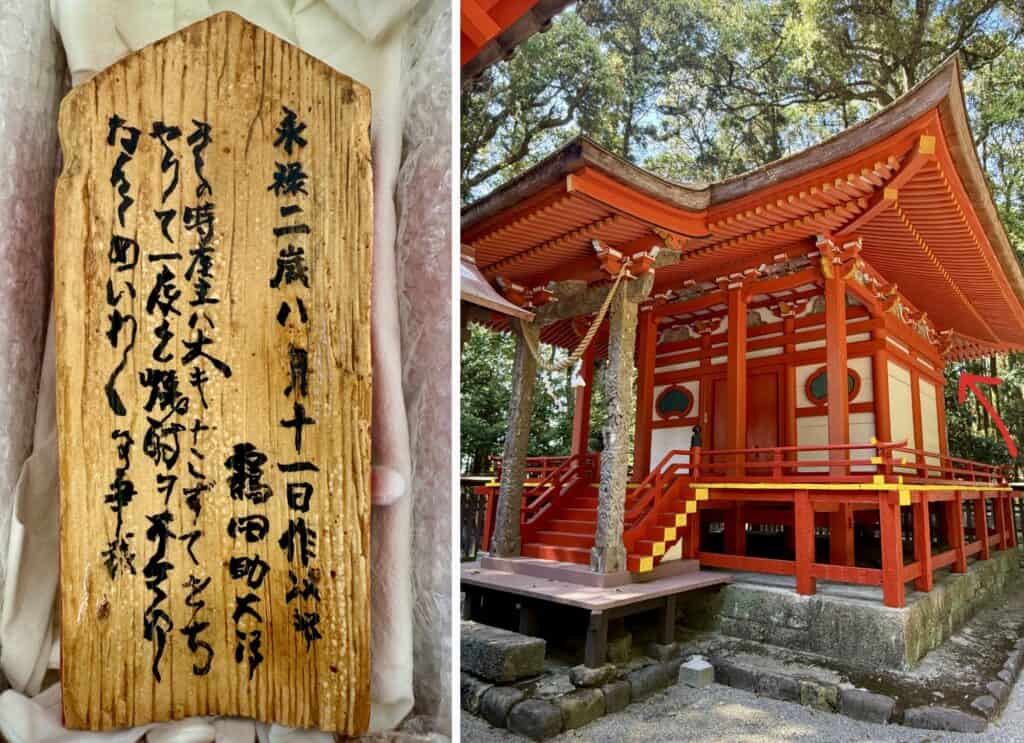 永禄二歳八月十一日作次郎
靏田助太郎
其時座主ハ大キナこすてをち
やりて一度も焼酎ヲ不被下候
何共めいわくな事哉